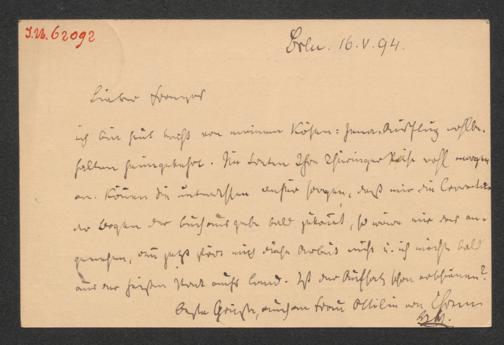 I.N. 62092
Brln. 16.V.94.
Lieber Franzos
ich bin seit heute von meinem Kösen: Jena-Ausflug wohlbe-
halten heimgekehrt. Sie treten Ihre Thüringer Reise wohl morgen
an. Können Sie inzwischen dafür sorgen, daß mir die Correctur
der Bogen der Buchausgabe bald zukommt, so wäre mir das an-
genehm, denn jetzt stört mich diese Arbeit nicht u. ich möchte bald
aus der heißen Stadt aufs Land. Ist der Aufsatz schon erschienen?
Beste Grüße, auch an Frau Ottilie von Ihrem